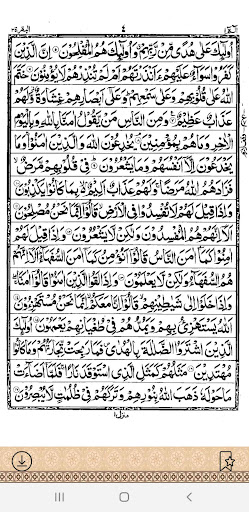 البقرة ٢
٤
الٓمّٓ ١
اُولٰٓئِكَ عَلٰى هُدًى مِّنْ رَّبِّهِمْ وَاُولٰٓئِكَ هُمُ الْمُفْلِحُوْنَ اِنَّ الَّذِيْنَ
كَفَرُوْا سَوَآءٌ عَلَيْهِمْ ءَاَنْذَرْتَهُمْ اَمْ لَمْ تُنْذِرْهُمْ لَا يُؤْمِنُوْنَ خَتَمَ
اللّٰهُ عَلٰى قُلُوْبِهِمْ وَعَلٰى سَمْعِهِمْ وَعَلٰٓى اَبْصَارِهِمْ غِشَاوَةٌ وَّلَهُمْ
عَذَابٌ عَظِيْمٌ وَمِنَ النَّاسِ مَنْ يَّقُوْلُ اٰمَنَّا بِاللّٰهِ وَبِالْيَوْمِ
الْاٰخِرِ وَمَا هُمْ بِمُؤْمِنِيْنَ يُخٰدِعُوْنَ اللّٰهَ وَالَّذِيْنَ اٰمَنُوْا وَمَا
يَخْدَعُوْنَ اِلَّآ اَنْفُسَهُمْ وَمَا يَشْعُرُوْنَ فِيْ قُلُوْبِهِمْ مَّرَضٌ
فَزَادَهُمُ اللّٰهُ مَرَضًا وَلَهُمْ عَذَابٌ اَلِيْمٌ بِمَا كَانُوْا يَكْذِبُوْنَ
وَاِذَا قِيْلَ لَهُمْ لَا تُفْسِدُوْا فِي الْاَرْضِ قَالُوْٓا اِنَّمَا نَحْنُ مُصْلِحُوْنَ
اَلَآ اِنَّهُمْ هُمُ الْمُفْسِدُوْنَ وَلٰكِنْ لَّا يَشْعُرُوْنَ وَاِذَا قِيْلَ لَهُمْ
اٰمِنُوْا كَمَآ اٰمَنَ النَّاسُ قَالُوْٓا اَنُؤْمِنُ كَمَآ اٰمَنَ السُّفَهَآءُ اَلَآ اِنَّهُمْ
هُمُ السُّفَهَآءُ وَلٰكِنْ لَّا يَعْلَمُوْنَ وَاِذَا لَقُوا الَّذِيْنَ اٰمَنُوْا قَالُوْٓا اٰمَنَّا
وَاِذَا خَلَوْا اِلٰى شَيٰطِيْنِهِمْ قَالُوْٓا اِنَّا مَعَكُمْ اِنَّمَا نَحْنُ مُسْتَهْزِءُوْنَ
اَللّٰهُ يَسْتَهْزِئُ بِهِمْ وَيَمُدُّهُمْ فِيْ طُغْيَانِهِمْ يَعْمَهُوْنَ اُولٰٓئِكَ
الَّذِيْنَ اشْتَرَوُا الضَّلٰلَةَ بِالْهُدٰى فَمَا رَبِحَتْ تِّجَارَتُهُمْ وَمَا كَانُوْا
مُهْتَدِيْنَ مَثَلُهُمْ كَمَثَلِ الَّذِي اسْتَوْقَدَ نَارًا فَلَمَّآ اَضَآءَتْ
مَا حَوْلَهٗ ذَهَبَ اللّٰهُ بِنُوْرِهِمْ وَتَرَكَهُمْ فِيْ ظُلُمٰتٍ لَّا يُبْصِرُوْنَ
منزل ١